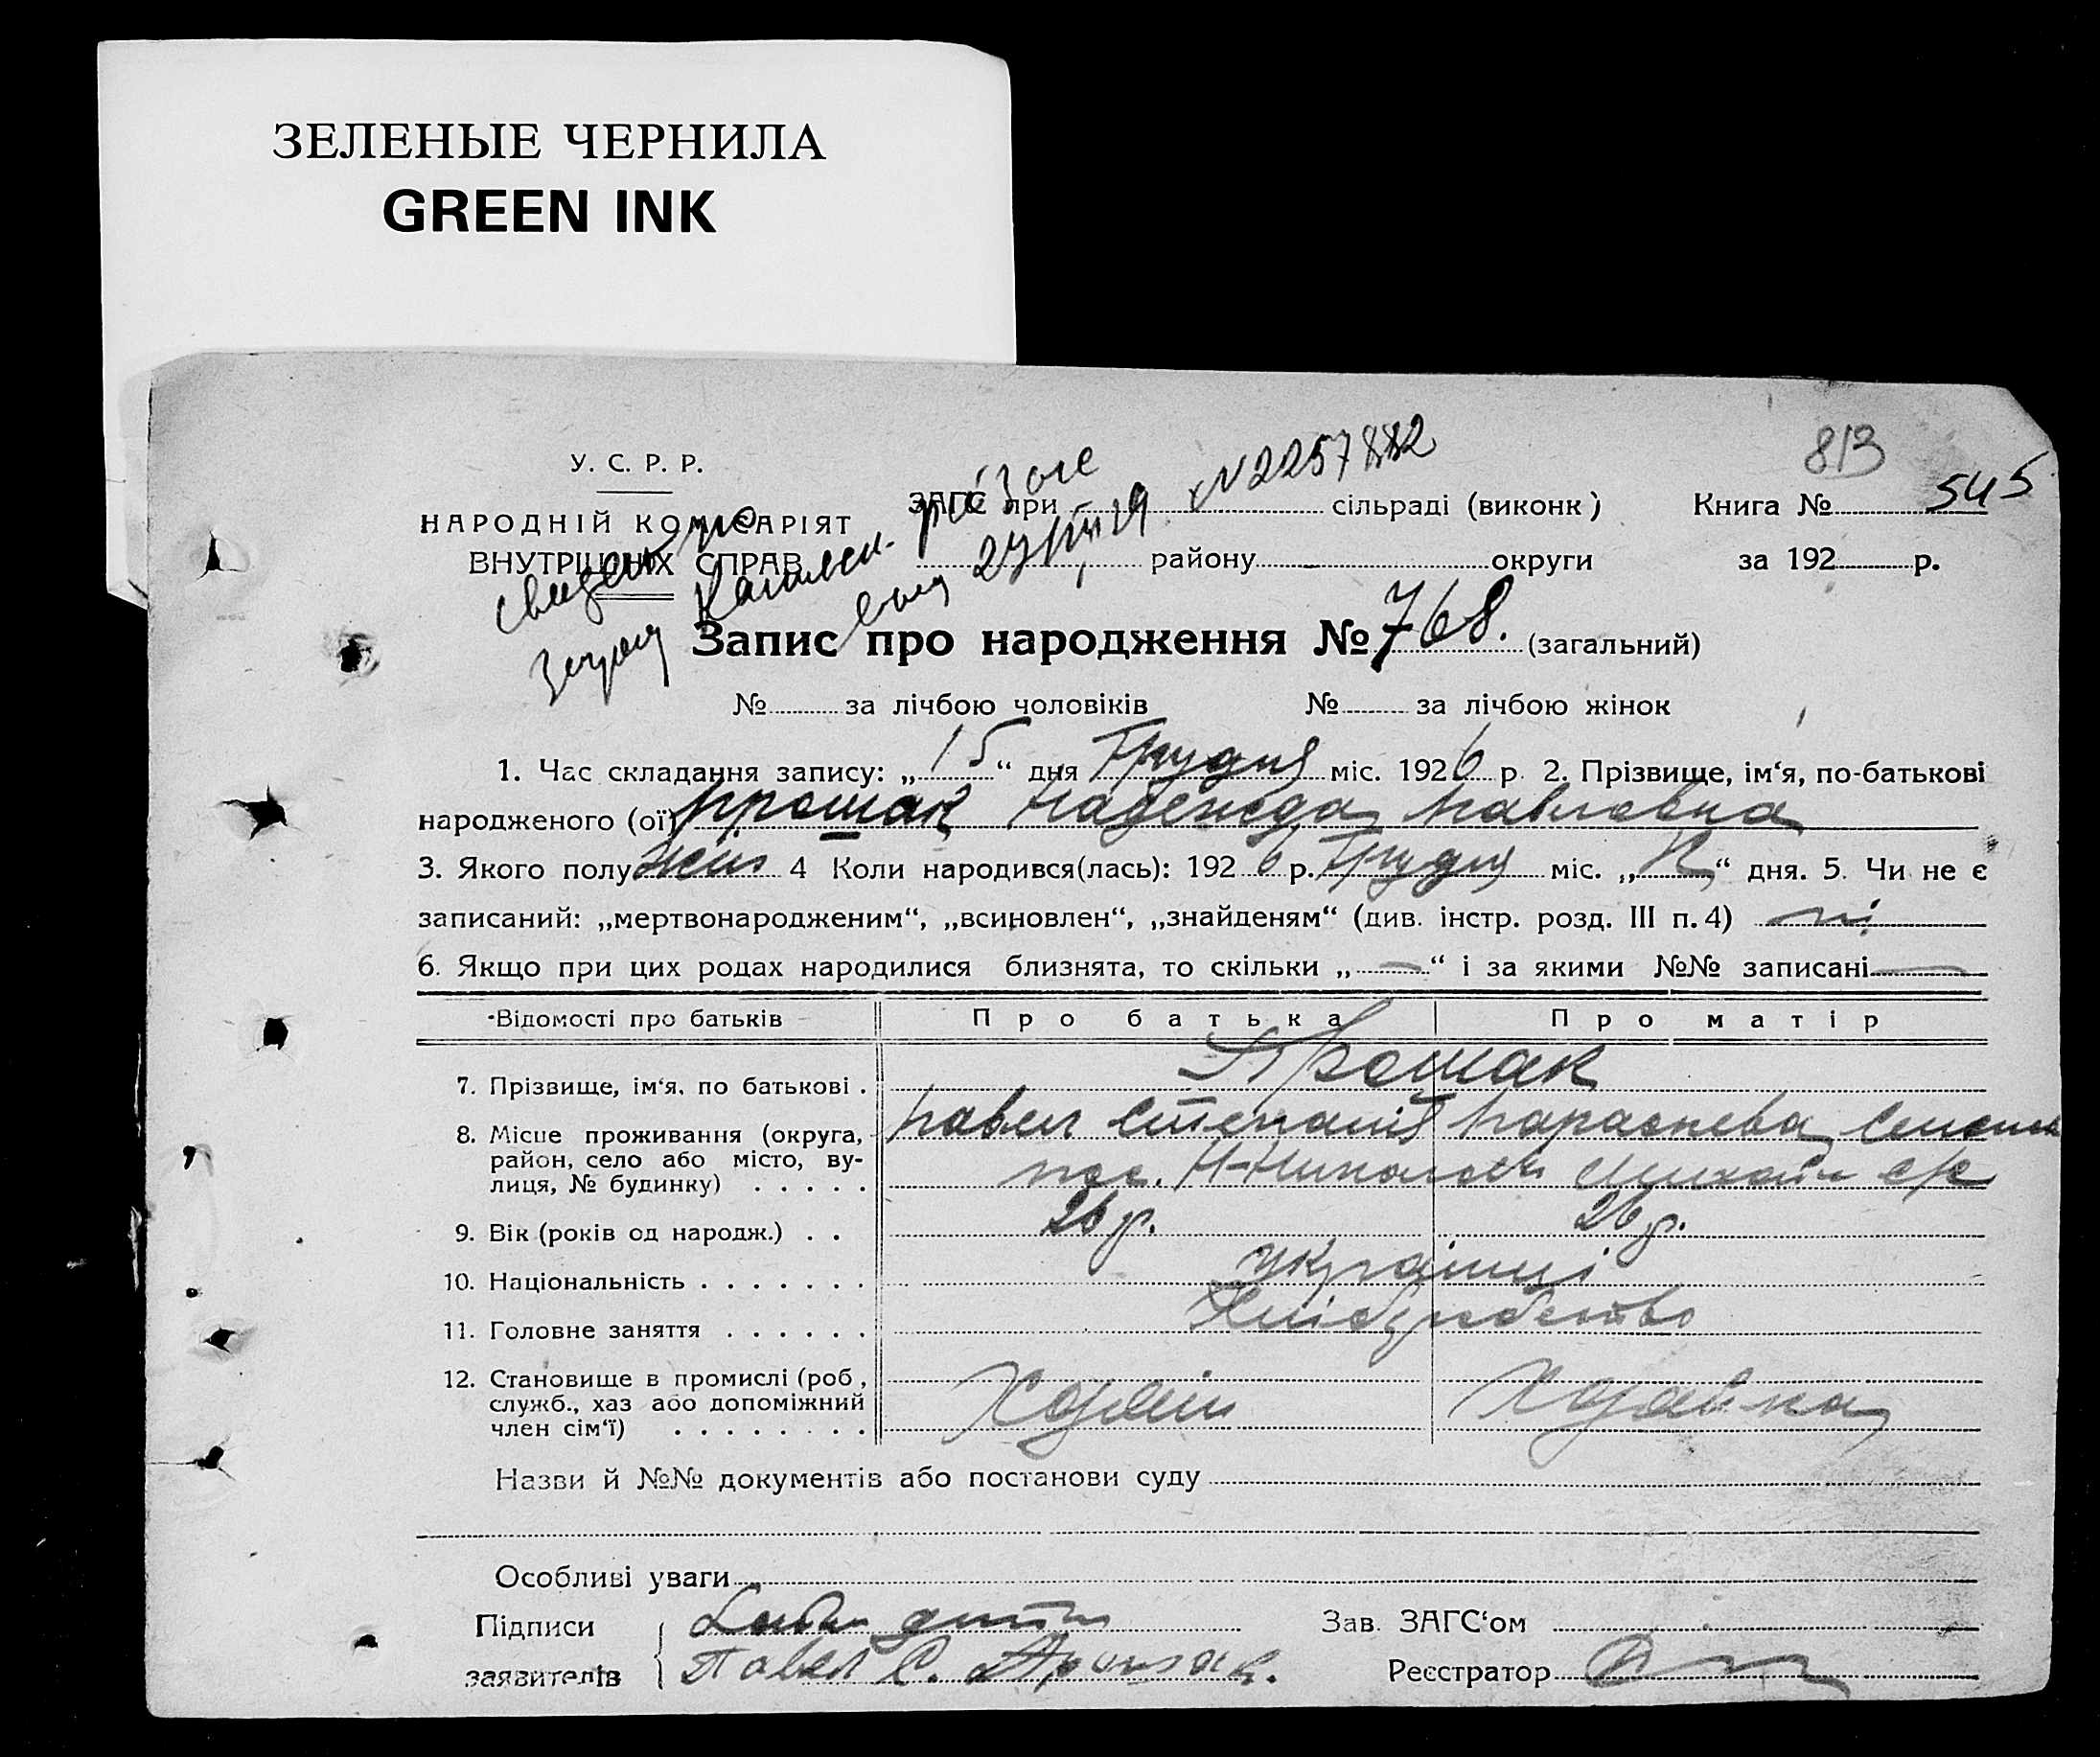 ЗЕЛЕНЫЕ ЧЕРНИЛА
GREEN INK
813
У. С. Р. Р.
НАРОДНІЙ КОМІСАРІЯТ
ВНУТРІШНІХ СПРАВ
ЗАГС при сільраді (виконк)
району округи
Книга № 545
за 192 р.
№2257882
Запис про народження № 768. (загальний)
№ за лічбою чоловіків № за лічбою жінок
1. Час складання запису: „15“ дня Грудня міс. 1926 р 2. Прізвище, ім‘я, по-батькові
народженого (ої) Прошак Надежда Павловна
3. Якого полу жін 4 Коли народився(лась): 1926 р. Грудня міс. „ “ дня. 5. Чи не є
записаний: „мертвонародженим“, „всиновлен“, „знайденям“ (див. інстр. розд. III п. 4) ні
6. Якщо при цих родах народилися близнята, то скільки „—“ і за якими №№ записані —
Відомості про батьків Про батька Про матір
7. Прізвище, ім‘я, по батькові . Прошак
Павел Степанів Параскева
8. Місце проживання (округа,
район, село або місто, ву-
лиця, № будинку) . . . . . пос. с/р
9. Вік (років од народж.) . . 26 р. 26 р.
10. Національність . . . . . . . українці
11. Головне заняття . . . . . . Хліборобство
12. Становище в промислі (роб,
служб., хаз або допоміжний
член сім‘ї) . . . . . . . . Хазяїн Хазяйка
Назви й №№ документів або постанови суду
Особливі уваги
Підписи
заявителів
Павел С. Прошак.
Зав. ЗАГС‘ом
Реєстратор